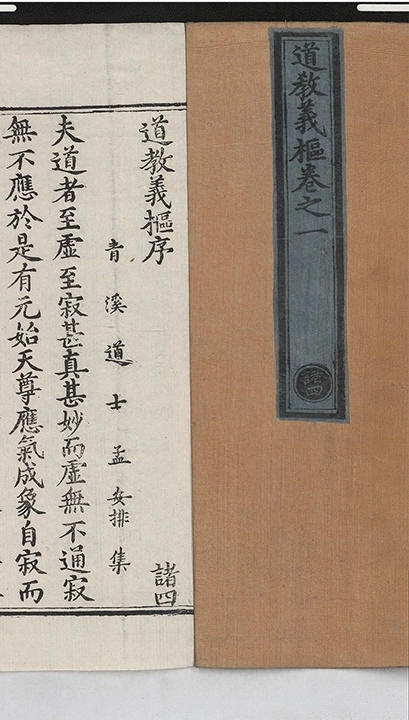 道教義樞卷之一
諸四
道教義樞序
諸四
青溪道士孟安排集
夫道者至虛至寂甚真甚妙而虛無不通寂
無不應於是有元始天尊應氣成象自寂而